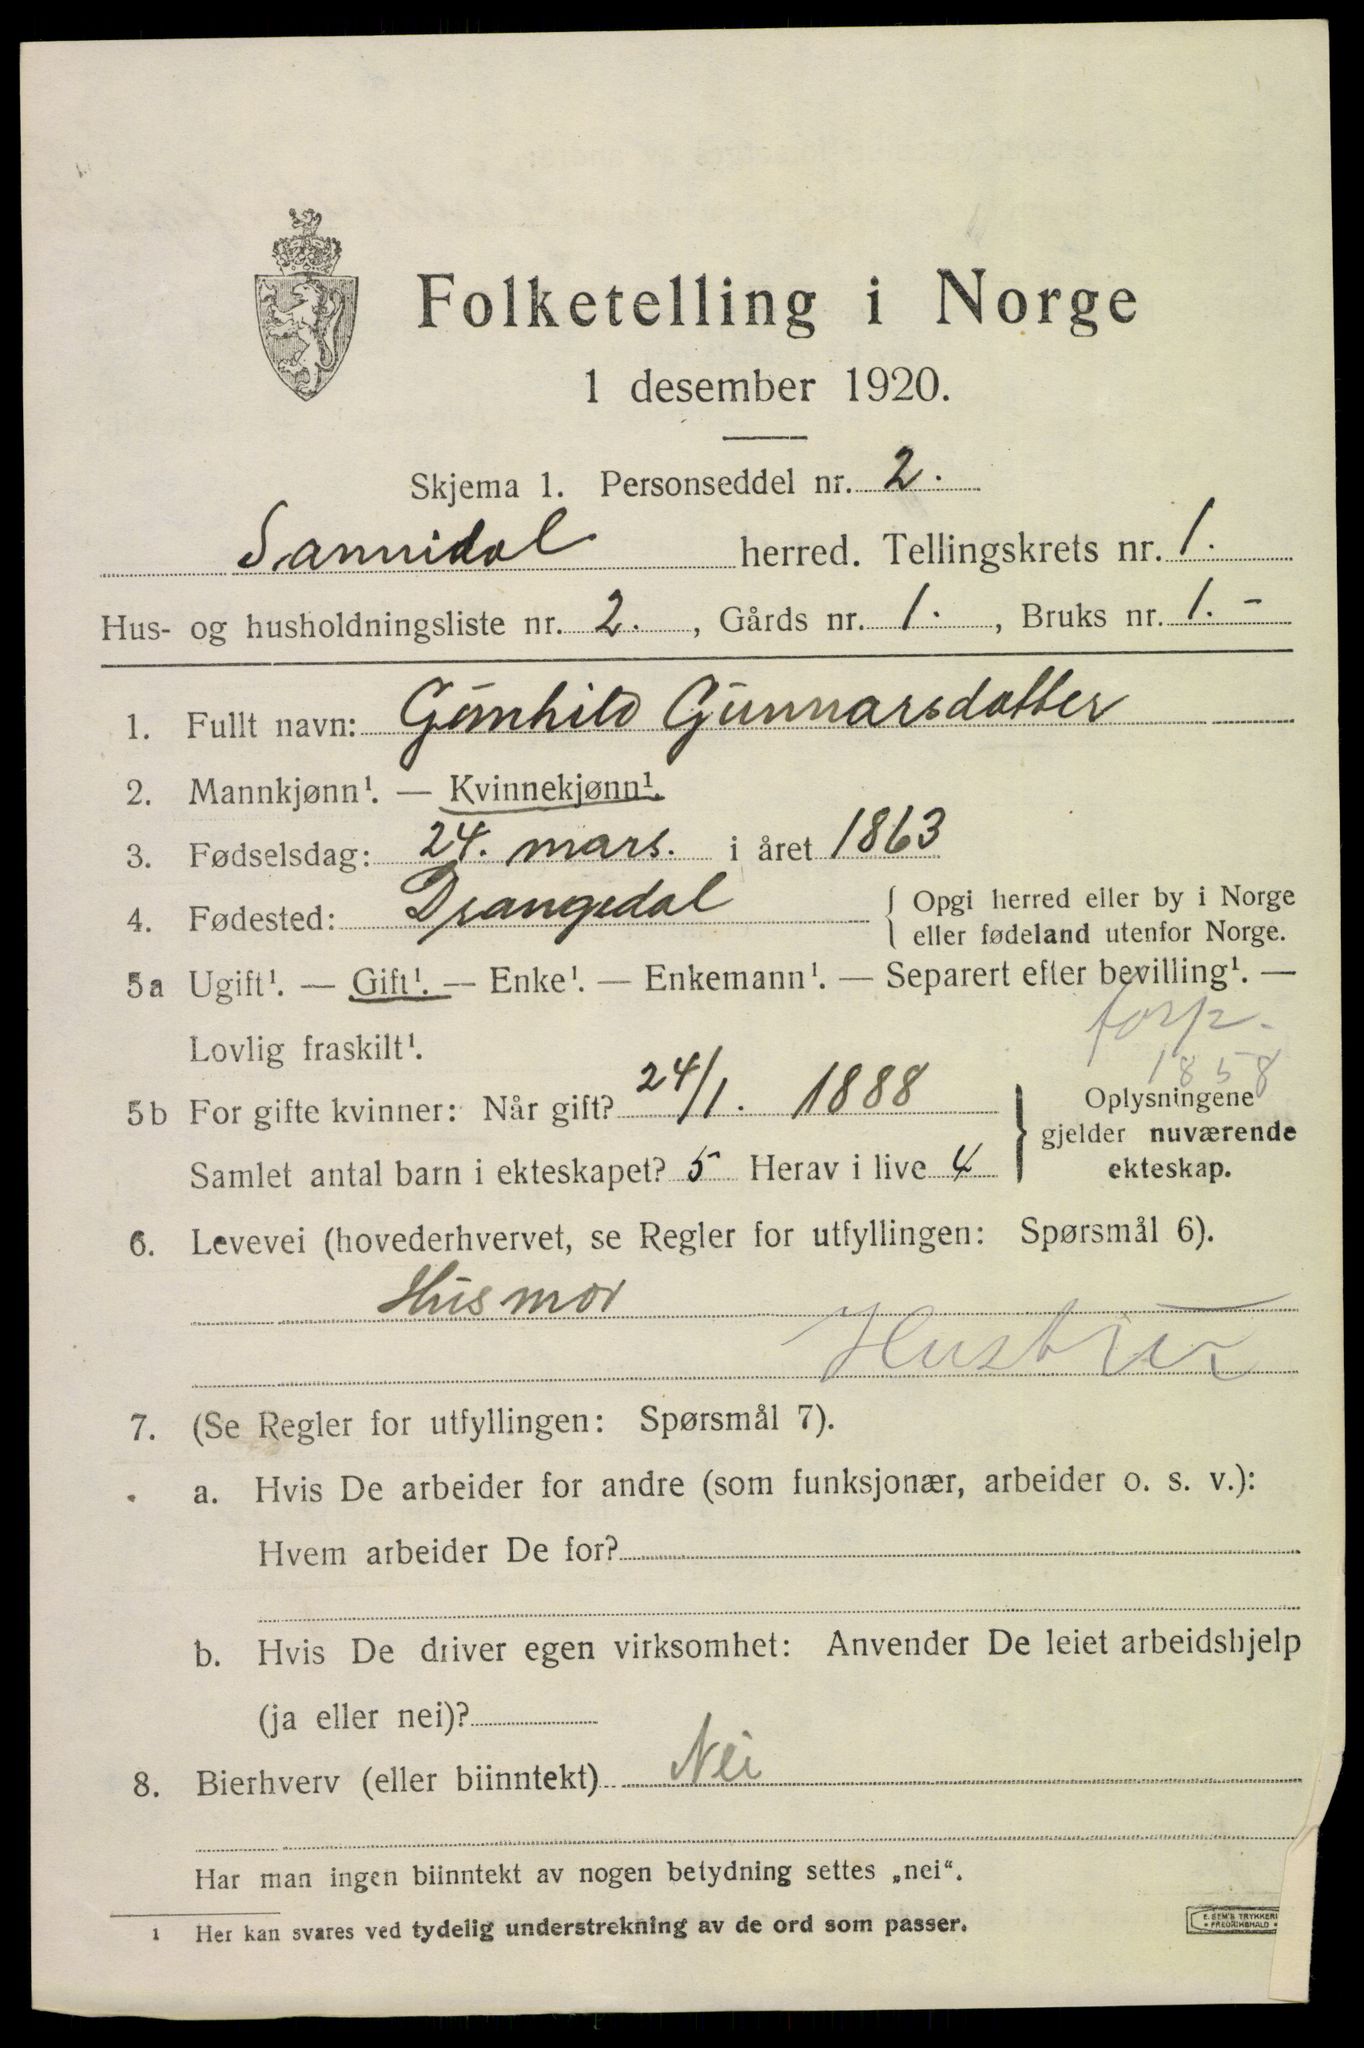 Folketelling i Norge
1 desember 1920.
Skjema 1. Personseddel nr. 2.
Sannidal herred. Tellingskrets nr. 1.
Hus- og husholdningsliste nr. 2. , Gårds nr. 1. , Bruks nr. 1. -
1. Fullt navn: Gunhild Gunnarsdatter
2. Mannkjønn¹. — Kvinnekjønn¹.
3. Fødselsdag: 24. mars. i året 1863
4. Fødested: Drangedal { Opgi herred eller by i Norge
eller fødeland utenfor Norge.
5a Ugift¹. — Gift¹. — Enke¹. — Enkemann¹. — Separert efter bevilling¹. —
Lovlig fraskilt¹. forp.
1858
5b For gifte kvinner: Når gift? 24/1. 1888 } Oplysningene
gjelder nuværende
Samlet antal barn i ekteskapet? 5 Herav i live 4 ekteskap.
6. Levevei (hovederhvervet, se Regler for utfyllingen: Spørsmål 6).
Husmor
Hustru
7. (Se Regler for utfyllingen: Spørsmål 7).
a. Hvis De arbeider for andre (som funksjonær, arbeider o. s. v.):
Hvem arbeider De for?
b. Hvis De driver egen virksomhet: Anvender De leiet arbeidshjelp
(ja eller nei)?
8. Bierhverv (eller biinntekt) Nei
Har man ingen biinntekt av nogen betydning settes „nei“.
1 Her kan svares ved tydelig understrekning av de ord som passer.
E. SEM'S TRYKKERI
• FREDRIKSHALD •